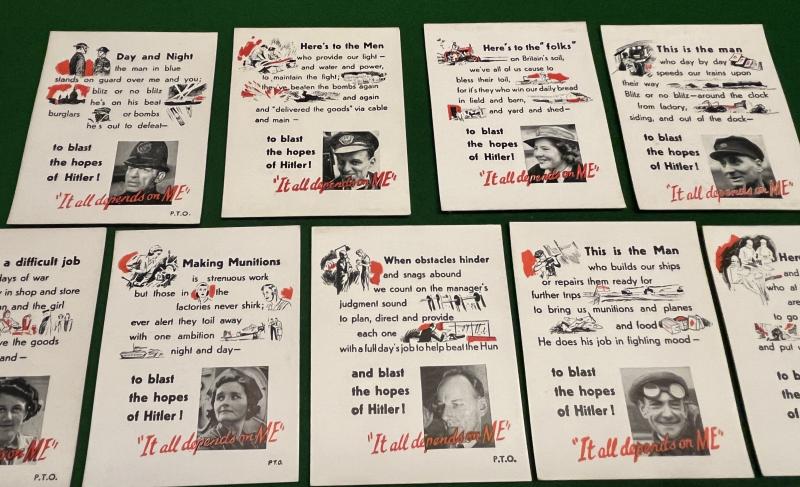 Day and Night
the man in blue
stands on guard over me and you;
blitz or no blitz
he's on his beat
burglars or bombs
he's out to defeat—
to blast
the hopes
of Hitler!
"It all depends on ME"
P.T.O.
Here's to the Men
who provide our light—
and water and power,
to maintain the light;
they've beaten the bombs again
and again
and "delivered the goods" via cable
and main—
to blast
the hopes
of Hitler!
"It all depends on ME"
Here's to the "folks"
on Britain's soil,
we've all of us cause to
bless their toil,
for it's they who win our daily bread
In field and barn,
and yard and shed—
to blast
the hopes
of Hitler!
"It all depends on ME"
This is the man
who day by day
speeds our trains upon
their way
Blitz or no blitz—around the clock
from factory,
siding, and out of the dock—
to blast
the hopes
of Hitler!
"It all depends on ME"
a difficult job
days of war
in shop and store
and the girl
ve the goods
and—
to blast
the hopes
of Hitler!
on ME"
P.T.O.
Making Munitions
is strenuous work
but those in the
factories never shirk;
ever alert they toil away
with one ambition
night and day—
to blast
the hopes
of Hitler!
"It all depends on ME"
P.T.O.
When obstacles hinder
and snags abound
we count on the manager's
judgment sound
to plan, direct and provide
each one
with a full day's job to help beat the Hun
and blast
the hopes
of Hitler!
"It all depends on ME"
P.T.O.
This is the Man
who builds our ships
or repairs them ready for
further trips
to bring us munitions and planes
and food
He does his job in fighting mood—
to blast
the hopes
of Hitler!
"It all depends on ME"
Her
and
who at
are
to go
and put
to b
the h
of H
"It